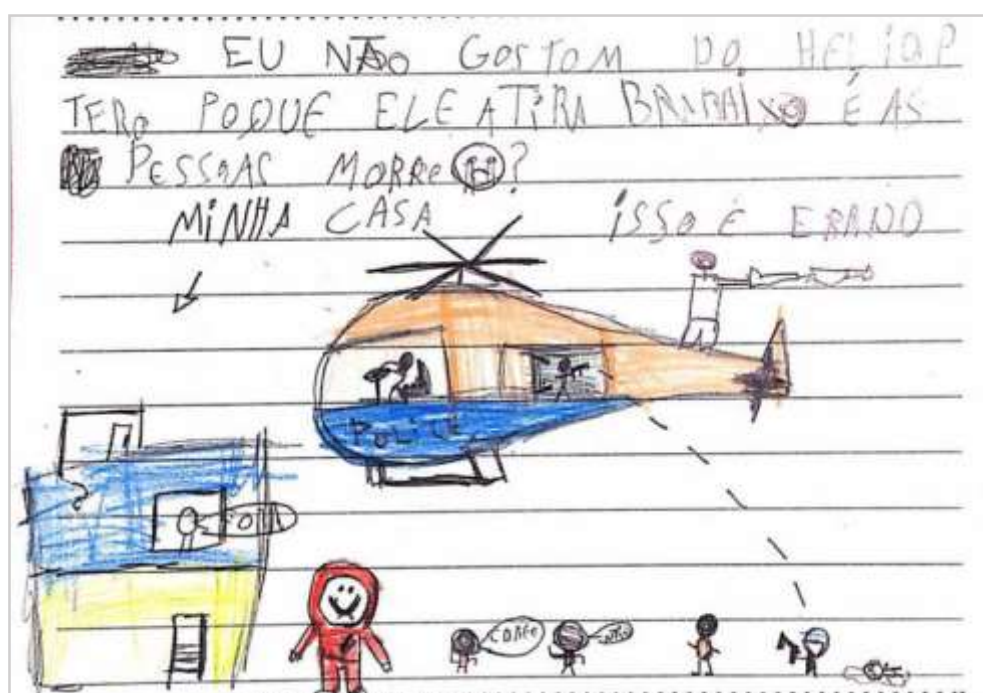 EU NÃO GOSTOM DO HELIOP
TERO POQUE ELE ATIRA BAIRAIXO É AS
PESSOAS MORRE?
MINHA CASA ISSO É ERADO
POLICE